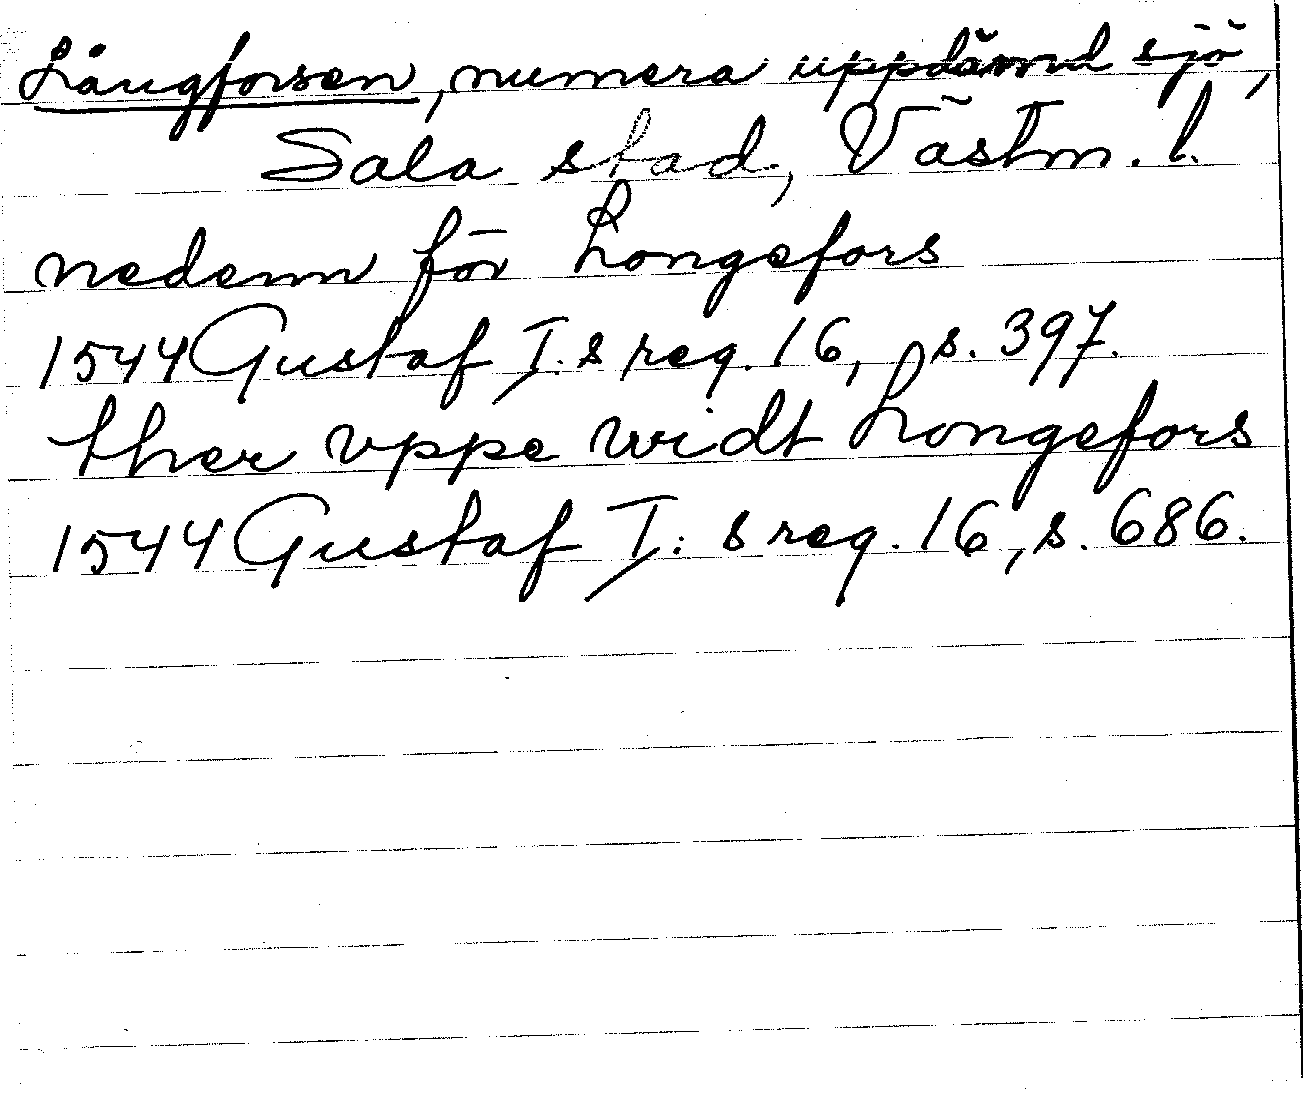 Långforsen, numera uppdämd sjö,
Sala stad, Västm. l.
nedenn för Longefors
1544 Gustaf I:s reg. 16, s. 397.
ther vppe widt Longefors
1544 Gustaf I:s reg. 16, s. 686.